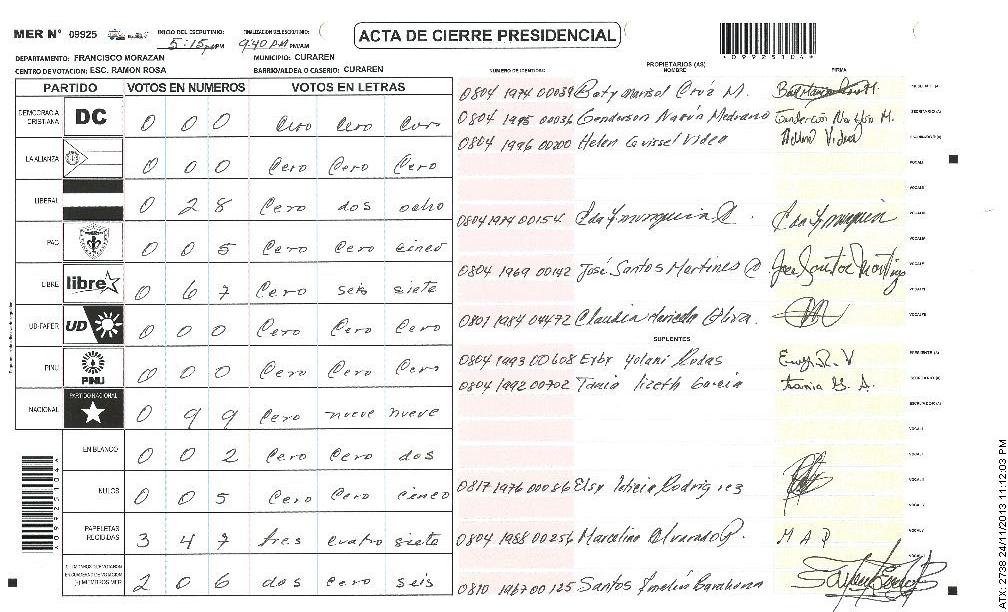 MER N° 09925
INICIO DEL ESCRUTINIO:
5:15 pm PM
FINALIZACION DEL ESCRUTINIO:
9:40 PM PM/AM
ACTA DE CIERRE PRESIDENCIAL
*09925104*
DEPARTAMENTO: FRANCISCO MORAZAN MUNICIPIO: CURAREN
CENTRO DE VOTACION: ESC. RAMON ROSA BARRIO/ALDEA O CASERIO: CURAREN
PARTIDO VOTOS EN NUMEROS VOTOS EN LETRAS
DEMOCRACIA CRISTIANA DC 0 0 0 Cero Cero Cero
LA ALIANZA 0 0 0 Cero Cero Cero
LIBERAL 0 2 8 Cero dos ocho
PAC 0 0 5 Cero Cero cinco
LIBRE libre 0 6 7 Cero seis siete
UD-FAPER UD 0 0 0 Cero Cero Cero
PINU PINU 0 0 0 Cero Cero Cero
NACIONAL PARTIDO NACIONAL 0 9 9 Cero nueve nueve
EN BLANCO 0 0 2 Cero Cero dos
NULOS 0 0 5 Cero Cero cinco
PAPELETAS RECIBIDAS 3 4 7 tres cuatro siete
2 0 6 dos cero seis
NUMERO DE IDENTIDAD PROPIETARIOS (AS) NOMBRE FIRMA
0804 1974 00039 Baty Marisol Cruz M.
0804 1995 00036 Genderson Nauún Medrano
0804 1996 00200 Helen Guissel Videa
0804 1974 00154 Eda Y munguia
0804 1969 00142 José Santos Martines
0801 1984 04472 Claudia Oliva.
SUPLENTES
0804 1993 00608 Yolani Rodas
0804 1992 00702 Tania lizeth Garcia
0817 1976 00086 Elsy leticia Rodriguez
0804 1988 00256 Marcelino Alvarado P. M A P
0810 1967 00125 Santos Barahona
ATX: 2738 24/11/2013 11:12:03 PM